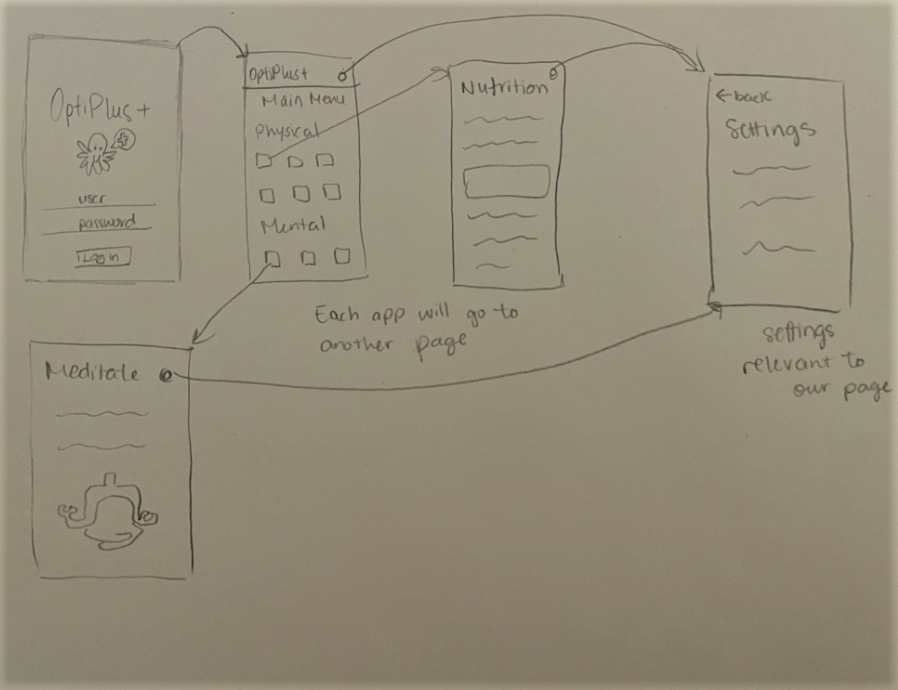 OptiPlus+
user
password
Log in
OptiPlus+
Main Menu
Physical
Mental
Nutrition
←back
Settings
Each app will go to
another page
settings
relevant to
our page
Meditate